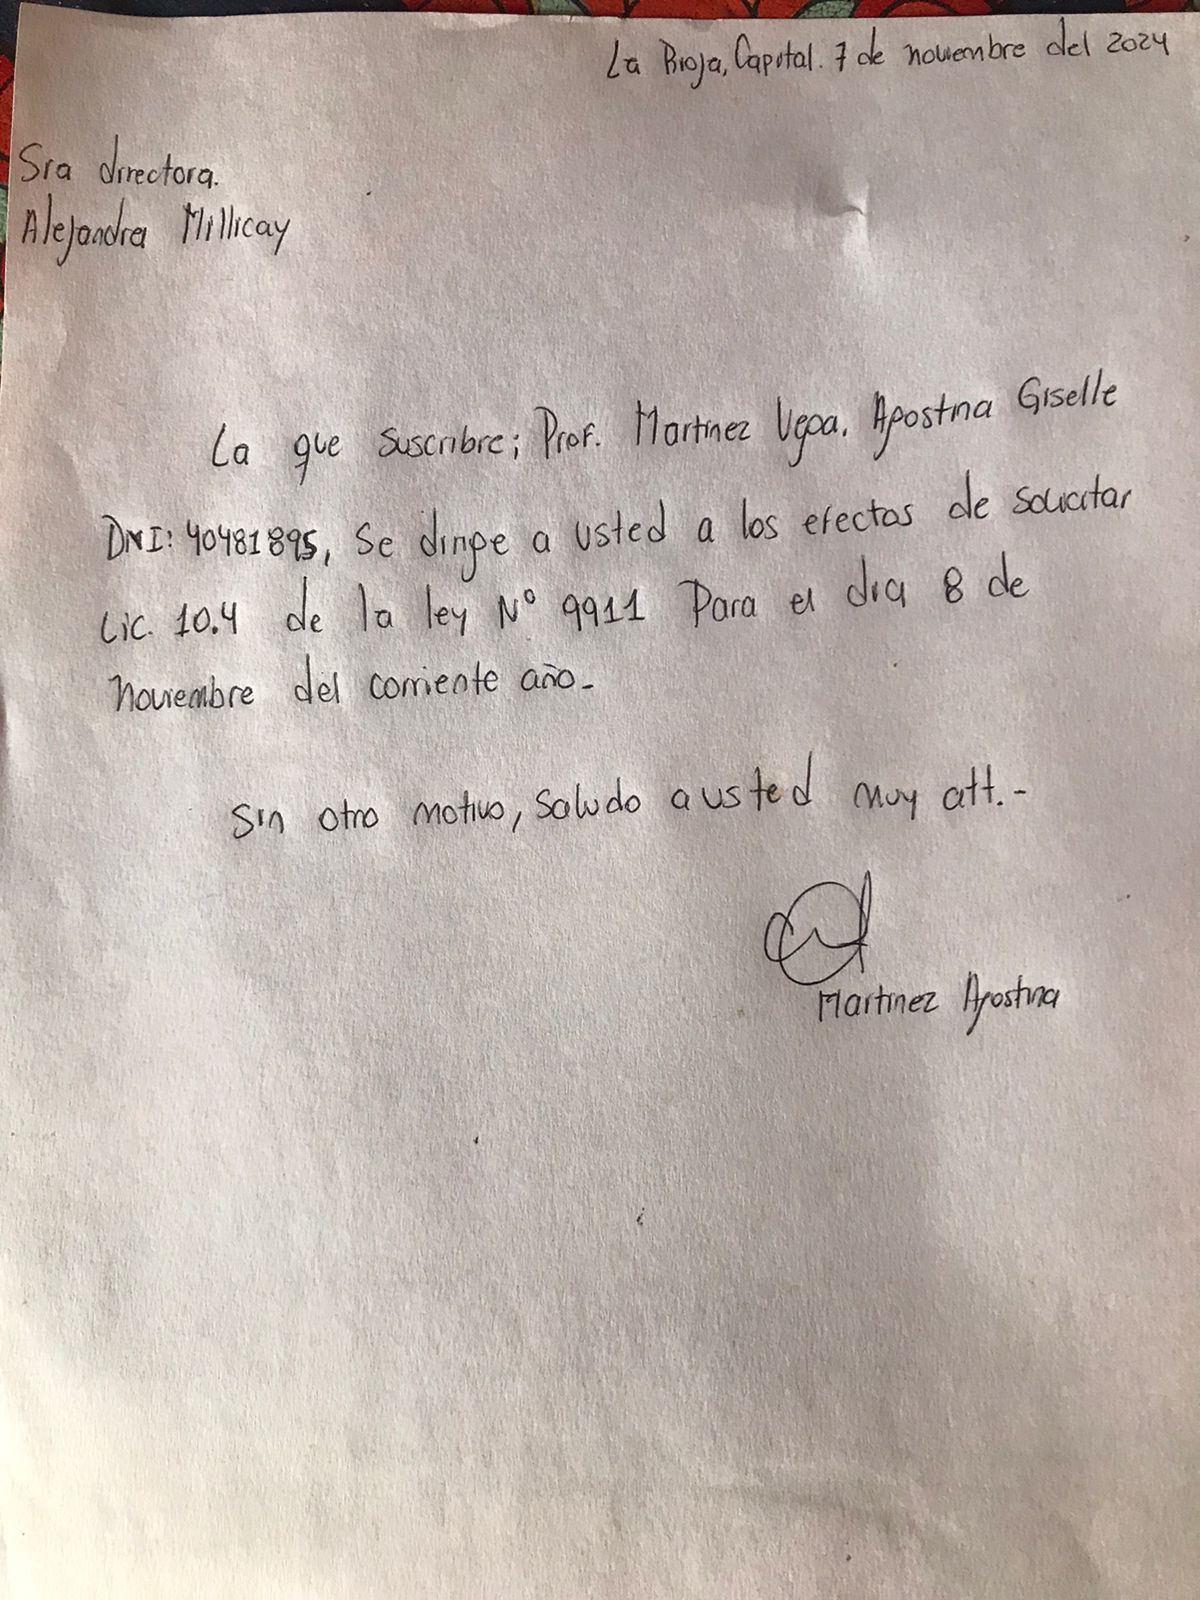 La Rioja, Capital. 7 de noviembre del 2024
Sra directora.
Alejandra Millicay
La que suscribre; Prof. Martinez Vega, Agostina Giselle
DNI: 40481895, Se dirige a usted a los efectos de solicitar
Lic. 10.4 de la ley N° 9911 Para el dia 8 de
noviembre del corriente año-
Sin otro motivo, Saludo a usted muy att.-
Martinez Agostina